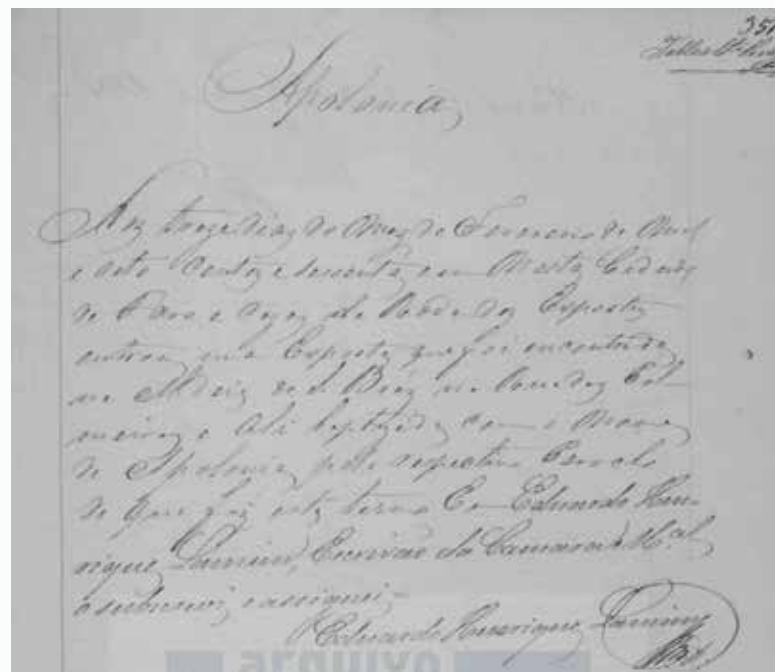 351
Apolonia
Aos treze dias do Mez de Fevereiro de Mil
e oito centos e secenta, em Nesta Cidade
de Faro e caza da Roda dos Expostos
entrou uma Exposta que foi encontrada
na de S. Braz
e Ali baptizada com o Nome
de Apolonia pelo respectivo Parocho
de que fiz este termo Eu Eduardo Hen-
rique, Escrivão da Camara Mcal
o subscrevi e assignei,-
Eduardo Henrique